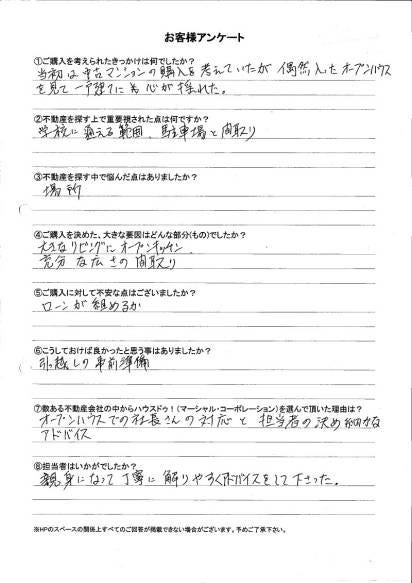 お客様アンケート
①ご購入を考えられたきっかけは何でしたか？
当初は中古マンションの購入を考えていたが 偶然入ったオープンハウス
を見て一戸建てにも心が揺れた。
②不動産を探す上で重要視された点は何ですか？
学校に通える範囲、駐車場と間取り
③不動産を探す中で悩んだ点はありましたか？
場所
④ご購入を決めた、大きな要因はどんな部分(もの)でしたか？
大きなリビングにオープンキッチン
充分な広さの間取り
⑤ご購入に対して不安な点はございましたか？
ローンが組めるか
⑥こうしておけば良かったと思う事はありましたか？
引っ越しの事前準備
⑦数ある不動産会社の中からハウスドゥ！(マーシャル・コーポレーション)を選んで頂いた理由は？
オープンハウスでの社長さんの対応と 担当者の決め細かな
アドバイス
⑧担当者はいかがでしたか？
親身になって丁寧に解りやすくアドバイスをして下さった。
※HPのスペースの関係上すべてのご回答が掲載できない場合がございます。予めご了承下さい。